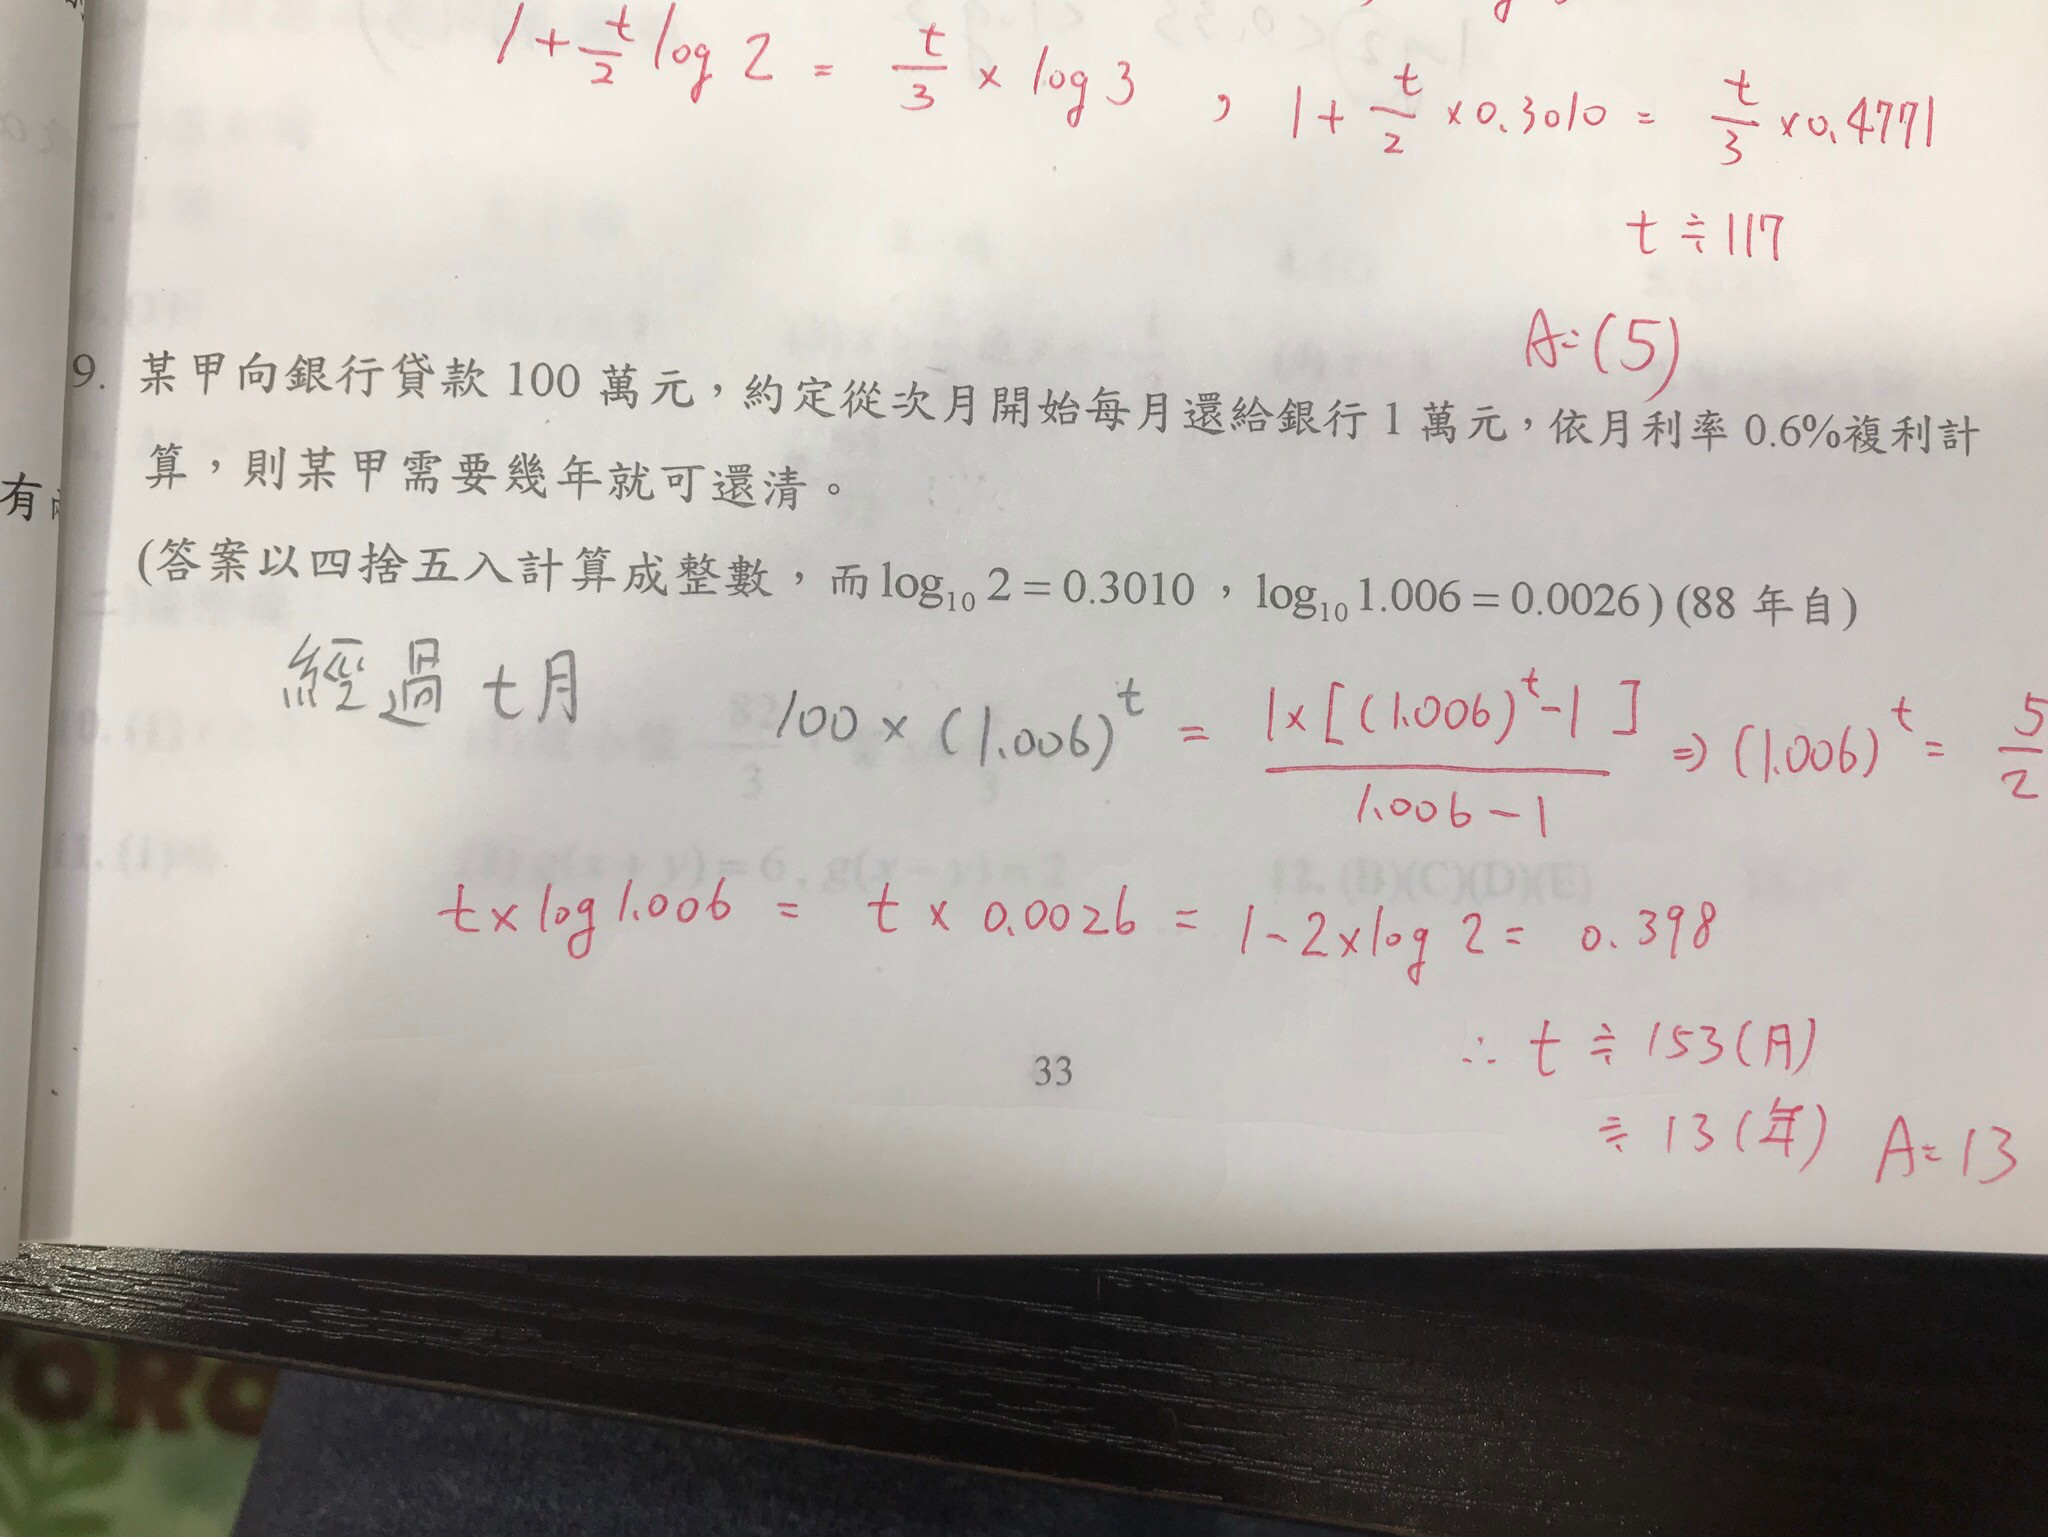 1 + t/2 log 2 = t/3 × log 3 , 1 + t/2 × 0.3010 = t/3 × 0.4771
t ≒ 117
A = (5)
9. 某甲向銀行貸款 100 萬元，約定從次月開始每月還給銀行 1 萬元，依月利率 0.6%複利計
算，則某甲需要幾年就可還清。
有
(答案以四捨五入計算成整數，而 log₁₀ 2 = 0.3010，log₁₀ 1.006 = 0.0026) (88 年自)
經過 t 月 100 × (1.006)^t = 1×[(1.006)^t - 1] / 1.006 - 1 ⇒ (1.006)^t = 5/2
t × log 1.006 = t × 0.0026 = 1 - 2 × log 2 = 0.398
∴ t ≒ 153 (月)
33
≒ 13 (年) A = 13
ORO